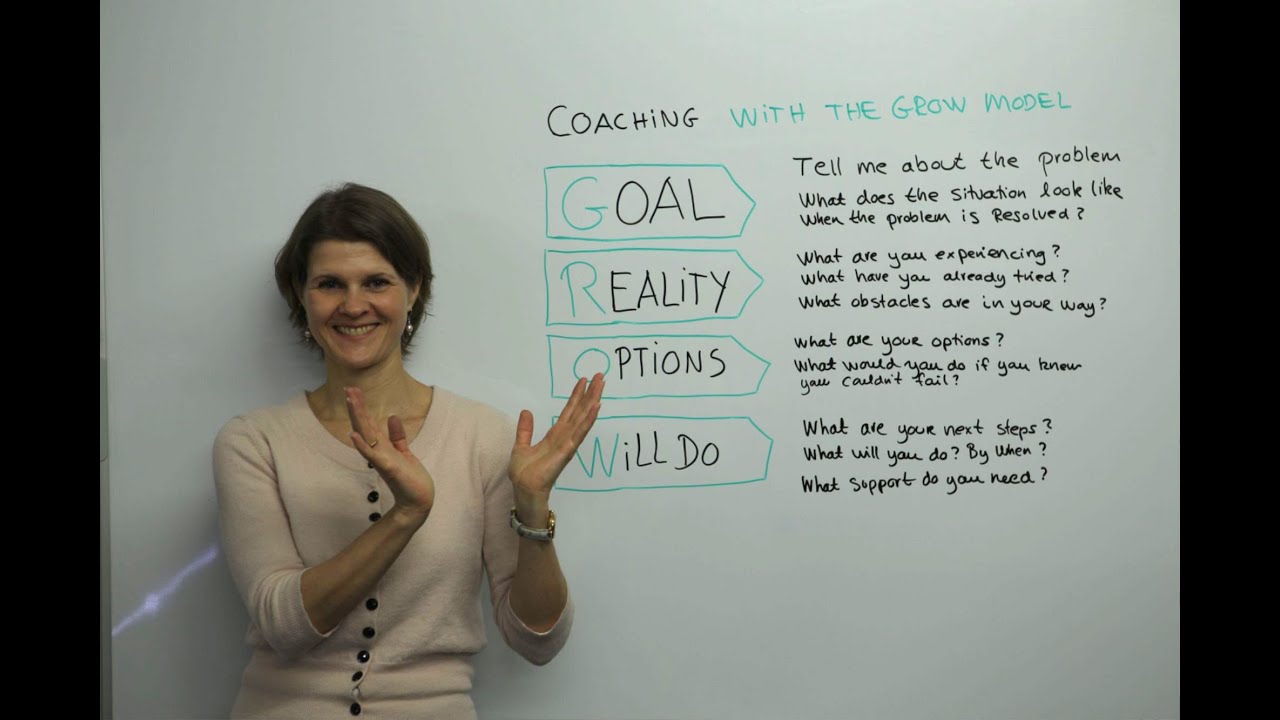 COACHiNG WiTH THE GROW MODEL
GOAL
Tell me about the problem
What does the situation look like
when the problem is Resolved?
REALiTY
What are you experiencing?
What have you already tried?
What obstacles are in your way?
OPTiONS
what are your options?
What would you do if you knew
you couldn't fail?
WiLL DO
What are your next steps?
What will you do? By When?
What support do you need?